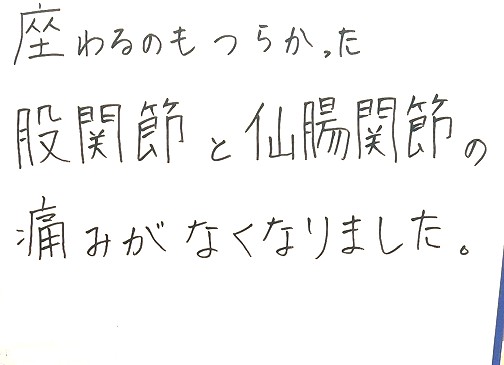 座わるのもつらかった
股関節と仙腸関節の
痛みがなくなりました。